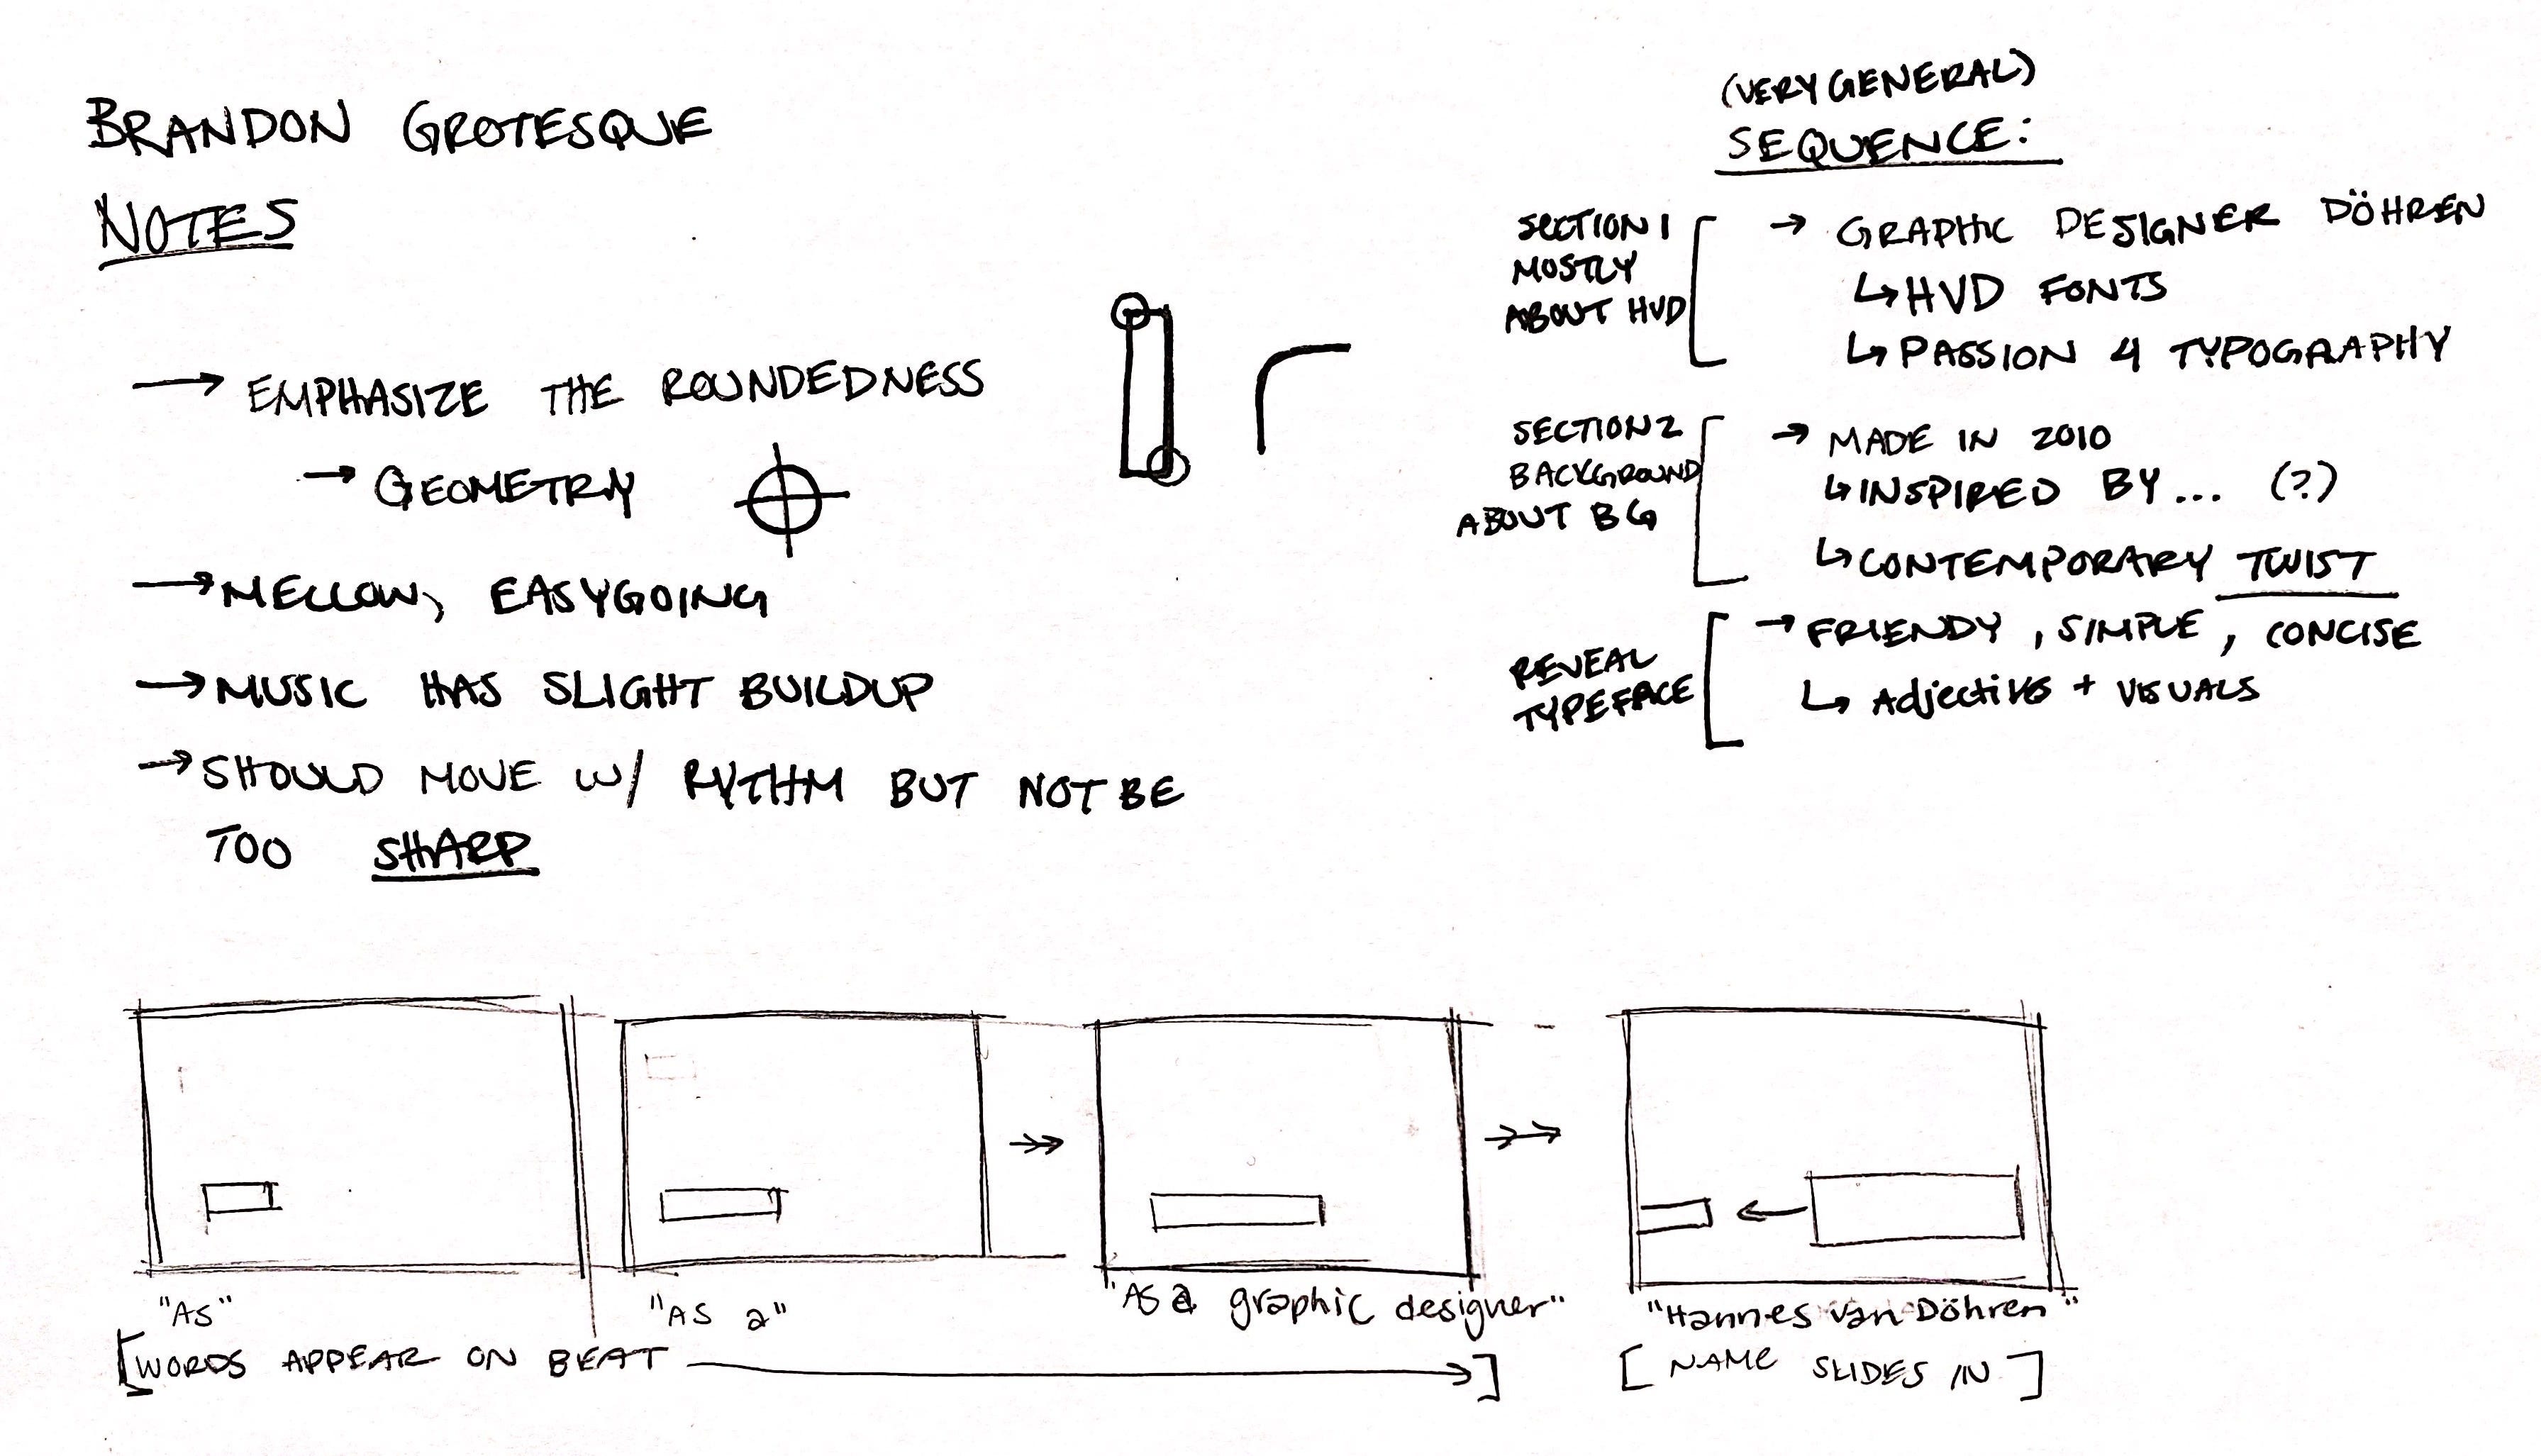 BRANDON GROTESQUE
NOTES
→ EMPHASIZE THE ROUNDEDNESS
→ GEOMETRY
→ MELLOW, EASYGOING
→ MUSIC HAS SLIGHT BUILDUP
→ SHOULD MOVE W/ RYTHM BUT NOT BE
TOO SHARP
(VERY GENERAL)
SEQUENCE:
SECTION 1
MOSTLY
ABOUT HVD
→ GRAPHIC DESIGNER DÖHREN
↳ HVD FONTS
↳ PASSION 4 TYPOGRAPHY
SECTION 2
BACKGROUND
ABOUT BG
→ MADE IN 2010
↳ INSPIRED BY... (?)
↳ CONTEMPORARY TWIST
REVEAL
TYPEFACE
→ FRIENDY, SIMPLE, CONCISE
↳ Adjectives + VISUALS
"AS"
"AS a"
"AS a graphic designer"
"Hannes van Döhren"
[WORDS APPEAR ON BEAT →]
[NAME SLIDES IN]